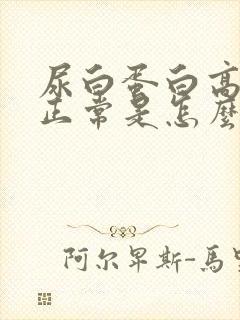 尿白蛋白高
正常是怎麼
阿尔卑斯-馬